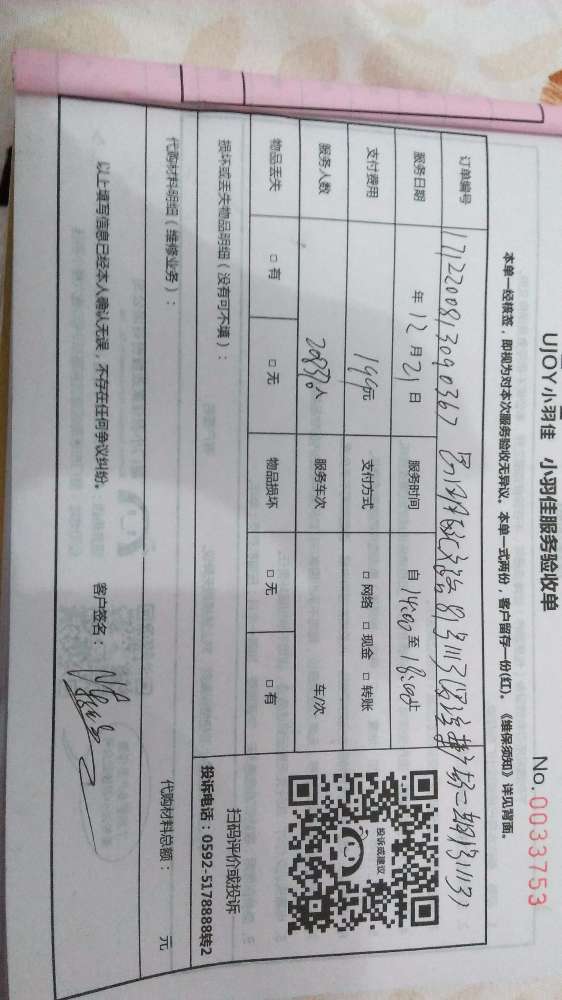 UJOY小羽佳 小羽佳服务验收单
No.0033753
本单一经核签，即视为对本次服务验收无异议。本单一式两份，客户留存一份(红)。《维保须知》详见背面。
订单编号 1712200813090367
服务日期 年 12 月 21 日 服务时间 自 14:00 至 18:00 止
支付费用 199元 支付方式 □ 网络 □ 现金 □ 转账
服务人数 人 服务车次 车/次
物品丢失 □ 有 □ 无 物品损坏 □ 无 □ 有
投诉或建议
扫码评价或投诉
投诉电话：0592-5178888转2
损坏或丢失物品明细（没有可不填）：
代购材料明细（维修业务）： 代购材料总额： 元
以上填写信息已经本人确认无误，不存在任何争议纠纷。 客户签名：